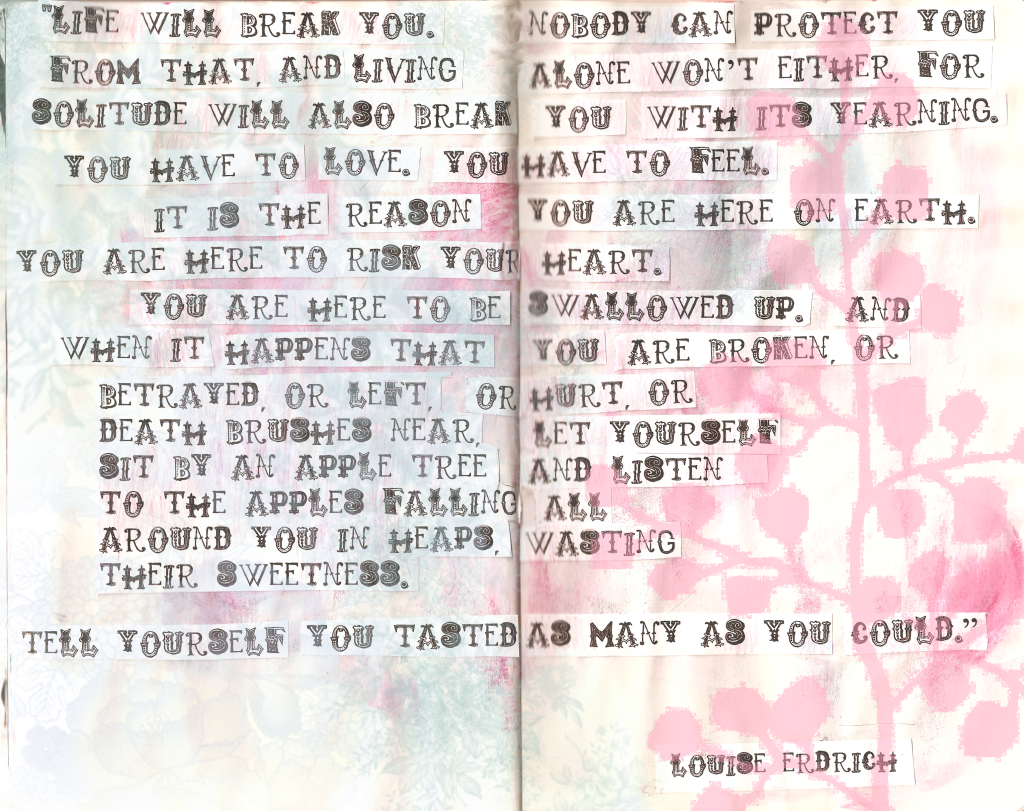 "LIFE WILL BREAK YOU. NOBODY CAN PROTECT YOU
FROM THAT, AND LIVING ALONE WON'T EITHER, FOR
SOLITUDE WILL ALSO BREAK YOU WITH ITS YEARNING.
YOU HAVE TO LOVE. YOU HAVE TO FEEL.
IT IS THE REASON YOU ARE HERE ON EARTH.
YOU ARE HERE TO RISK YOUR HEART.
YOU ARE HERE TO BE SWALLOWED UP. AND
WHEN IT HAPPENS THAT YOU ARE BROKEN, OR
BETRAYED, OR LEFT, OR HURT, OR
DEATH BRUSHES NEAR, LET YOURSELF
SIT BY AN APPLE TREE AND LISTEN
TO THE APPLES FALLING ALL
AROUND YOU IN HEAPS, WASTING
THEIR SWEETNESS.
TELL YOURSELF YOU TASTED AS MANY AS YOU COULD."
LOUISE ERDRICH